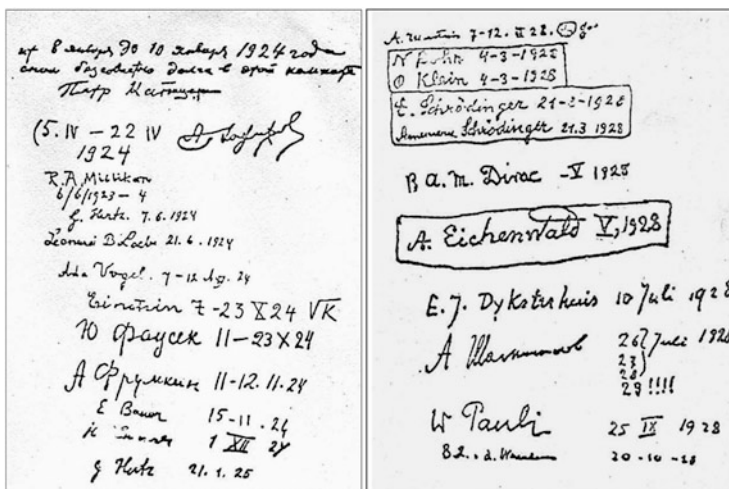 8 января до 10 января 1924 года
в этой комнате
Петр Капица
(5. IV – 22 IV
1924
R.A. Millikan
6/6/1923 – 4
G. Hertz. 7.6.1924
Leonard B Loeb 21.6.1924
Ada Vogel. 7–12 24
Einstein 7–23 X 24 VK
Ю Фаусек 11–23 X 24
А Фрумкин 11–12. 11. 24
E Bauer 15–11. 24
1 XII 24
G Hertz 21.1.25
7–12. 28.
N Bohr 4–3–1928
O Klein 4–3–1928
E. Schrödinger 21–3–1928
Annemarie Schrödinger 21.3 1928
P. A. M. Dirac – V 1928
A. Eichenwald V, 1928
E. J. Dyksterhuis 10 Juli 1928
А Шальников 26 Juli 1928
23
28
29 !!!!
W Pauli 25 IX 1928
20–10–28